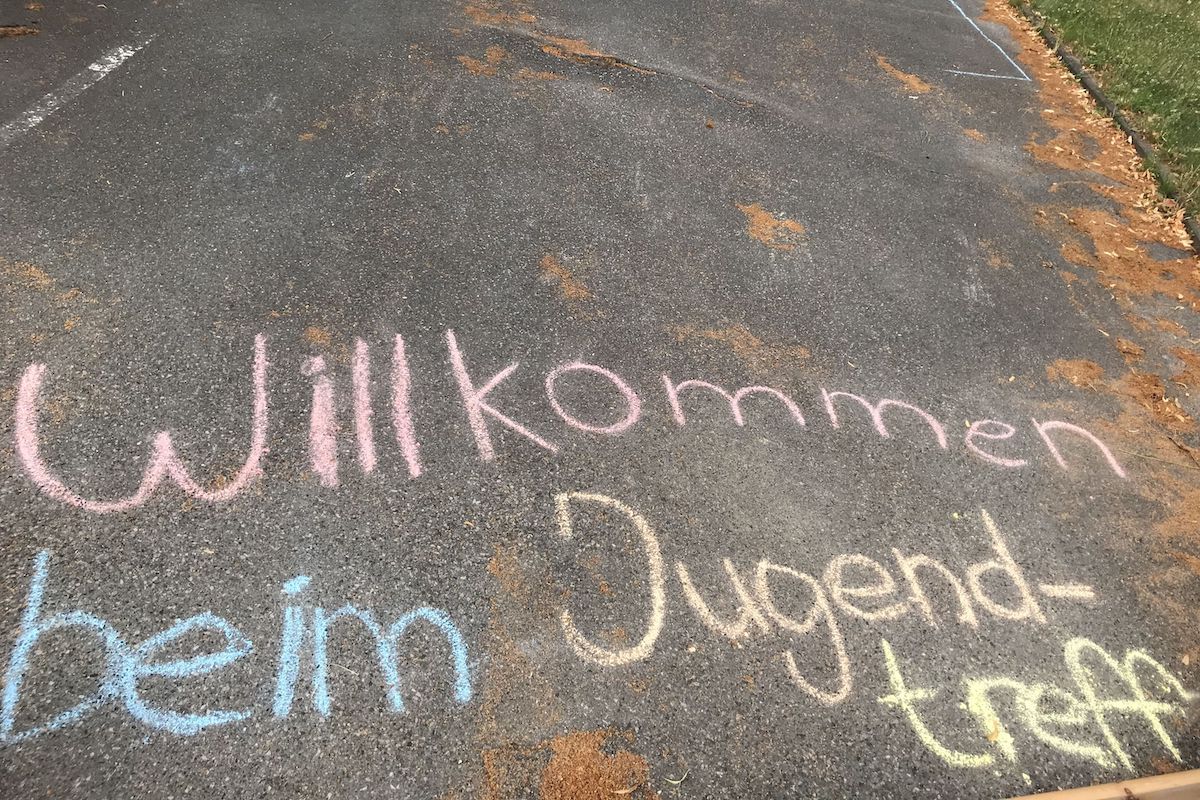 Willkommen
beim Jugend-
treff